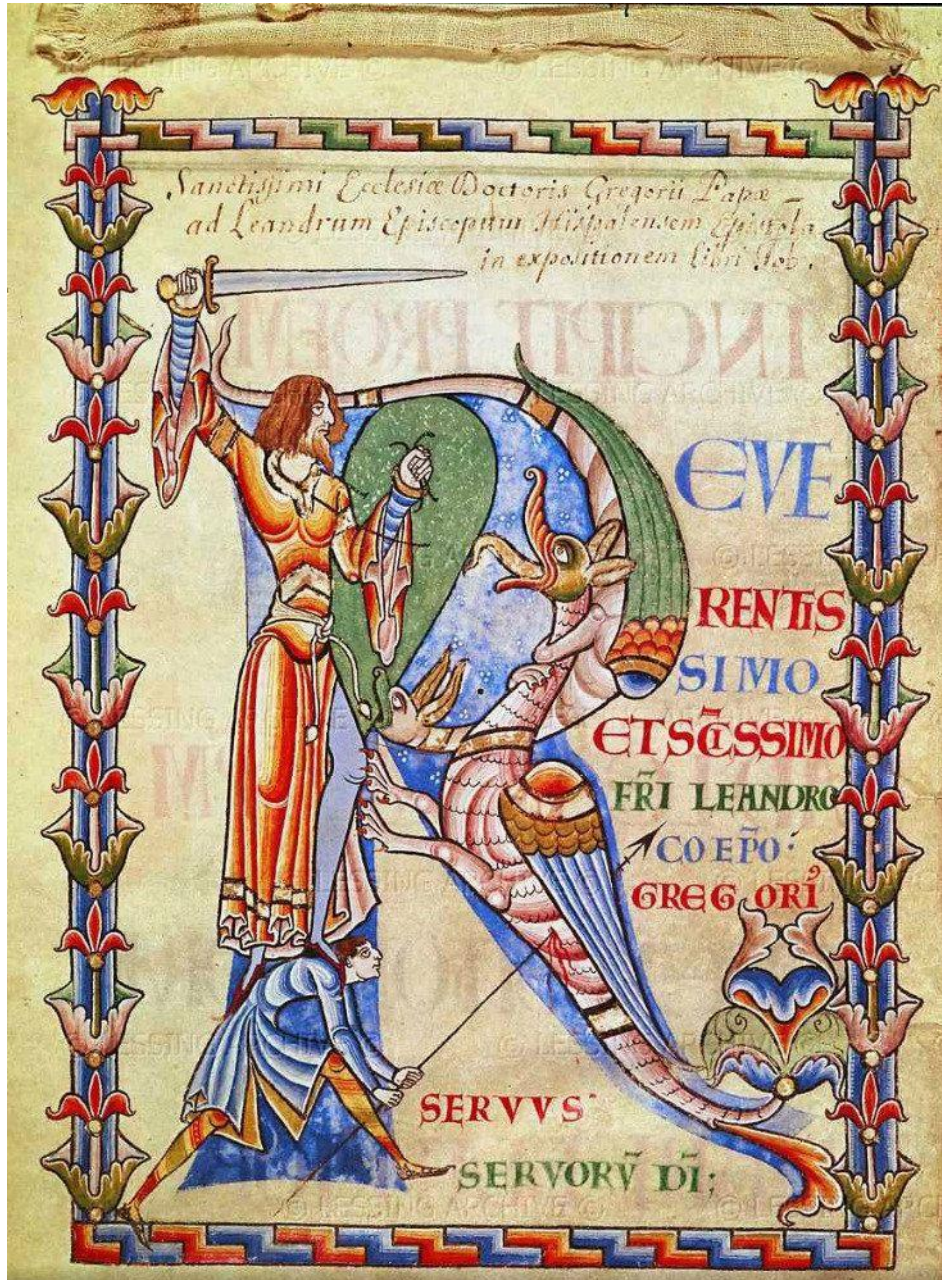 Sanctissimi Ecclesiæ Doctoris Gregorii Papæ
ad Leandrum Episcopum Hispalensem Epistola
in expositionem libri Iob.
INCIPIT PROEM
R
EVE
RENTIS
SIMO
ET SC̄ISSIMO
FR̄I LEANDRO
COEP̄O
GREGORI᾽
SERVVS
SERVORV̄ DĪ;
© LESSING ARCHIVE ©